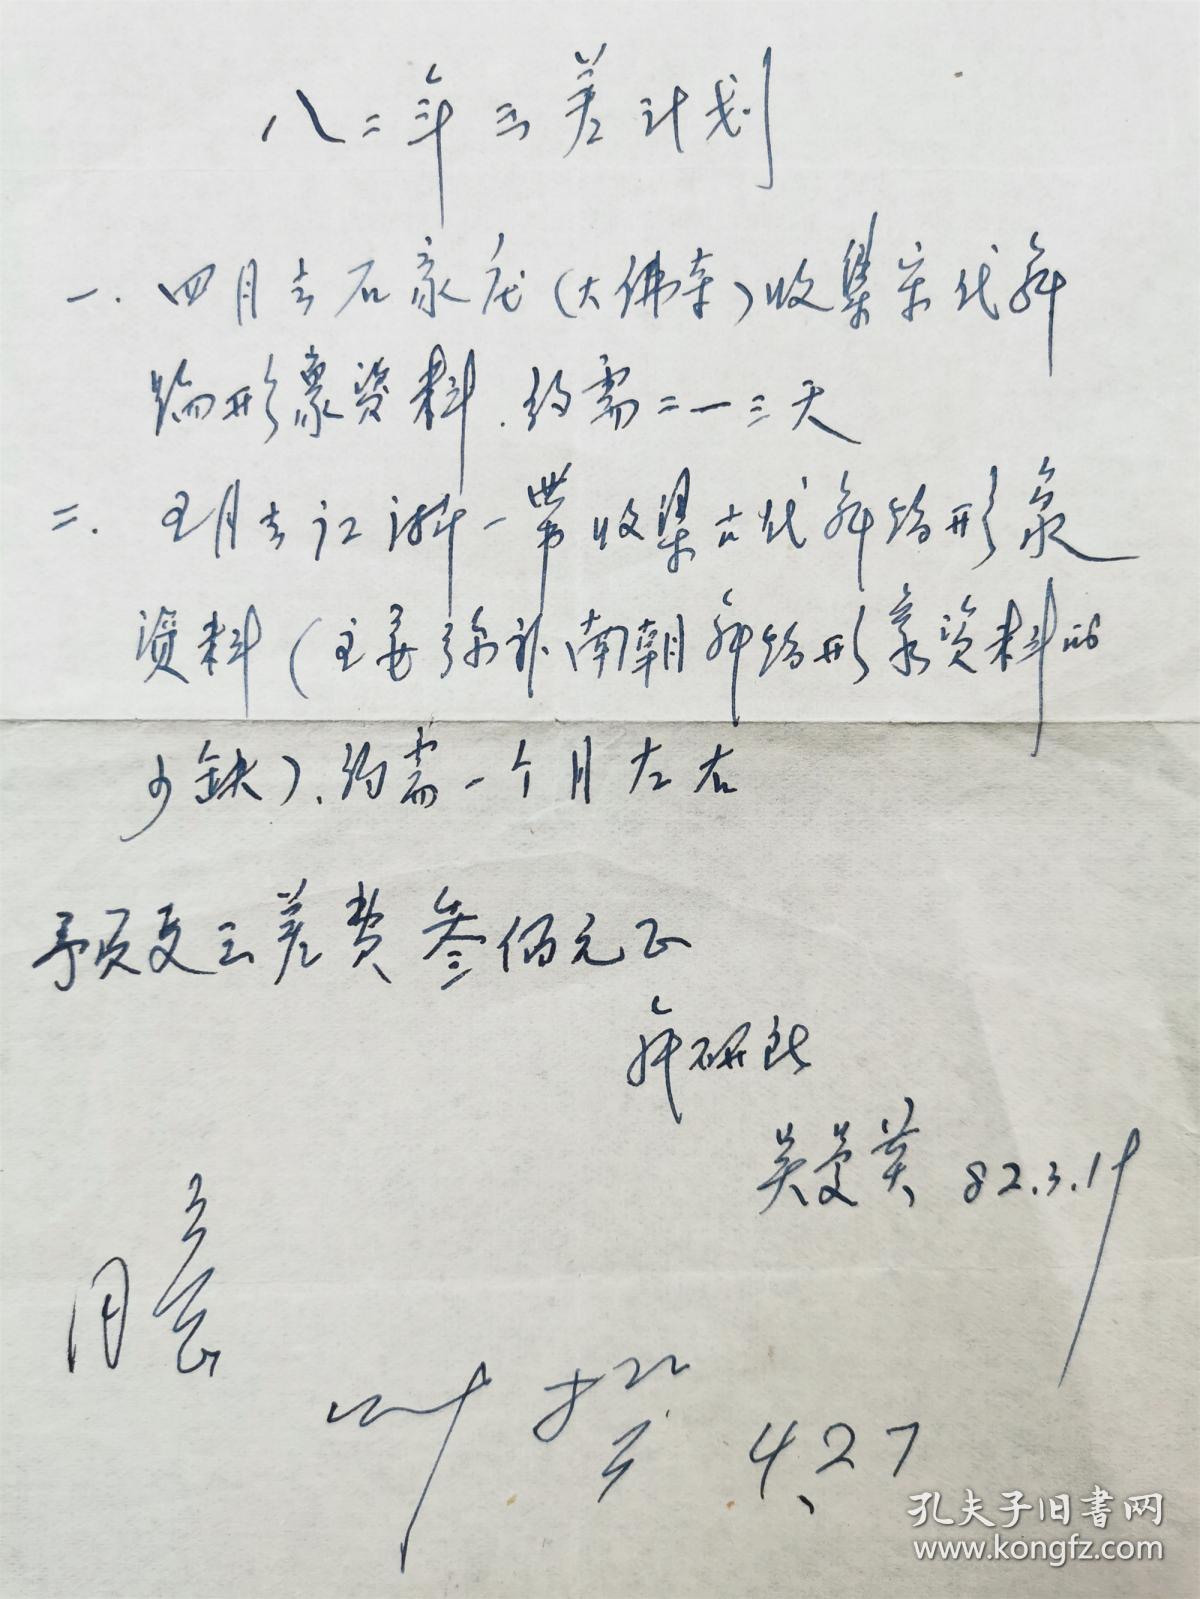 八二年出差计划
一.四月去石家庄(大佛寺)收集宋代舞
蹈形象资料.约需二一三天
二.五月去江浙一带收集古代舞蹈形象
资料(主要弥补南朝舞蹈形象资料的
少缺).约需一个月左右
予领支出差费叁佰元正
舞研所
吴曼英 82.3.19
同意
4.27
孔夫子旧书网
www.kongfz.com